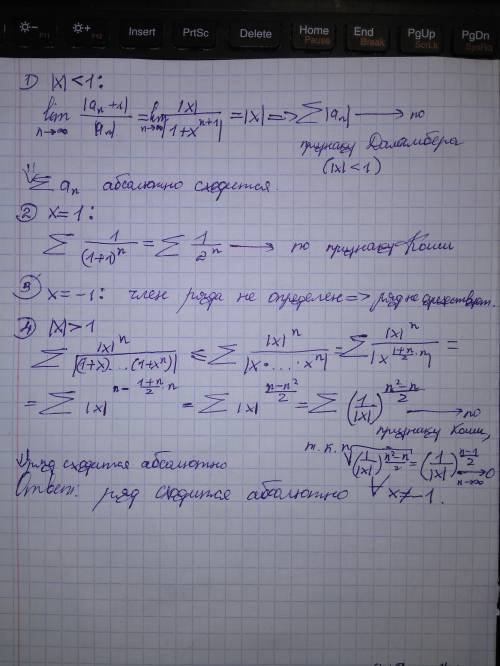 F11 F12 Insert PrtSc Delete Home Pause End Break PgUp ScrLk PgDn SysRq
1) |x| < 1:
lim n→∞ |aₙ+1| / |aₙ| = lim n→∞ |x| / |1+xⁿ⁺¹| = |x| => ∑|aₙ| → по
признаку Даламбера
(|x|<1)
⇓
∑aₙ абсолютно сходится.
2) x=1:
∑ 1/(1+1)ⁿ = ∑ 1/2ⁿ → по признаку Коши
3) x=-1: член ряда не определен => ряд не существует.
4) |x|>1
∑ |x|ⁿ / |(1+x)...(1+xⁿ)| ≤ ∑ |x|ⁿ / |x·...·xⁿ| = ∑ |x|ⁿ / |x^((1+n)/2·n)| =
= ∑ |x|^(n-(1+n)/2·n) = ∑ |x|^((n-n²)/2) = ∑ (1/|x|)^((n²-n)/2) → по
признаку Коши,
т.к. ⁿ√((1/|x|)^((n²-n)/2)) = (1/|x|)^((n-1)/2) → 0 n→∞
⇓ ряд сходится абсолютно
Ответ: ряд сходится абсолютно ∀ x≠-1.